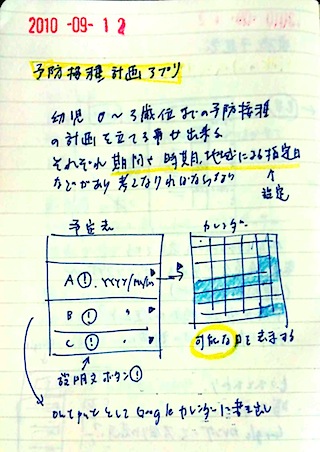 2010 -09- 12
予防接種計画アプリ
幼児 0〜3歳位までの予防接種
の計画を立てる事が出来る
それぞれ期間や時期、地域による指定日
などがあり考えなければならない
設定
予定表
カレンダー
A ! . YYYY/mm/
B ! 〃
C ! 〃
可能な日を表示する
説明文ボタン !
outputとして Google カレンダーに書き出し